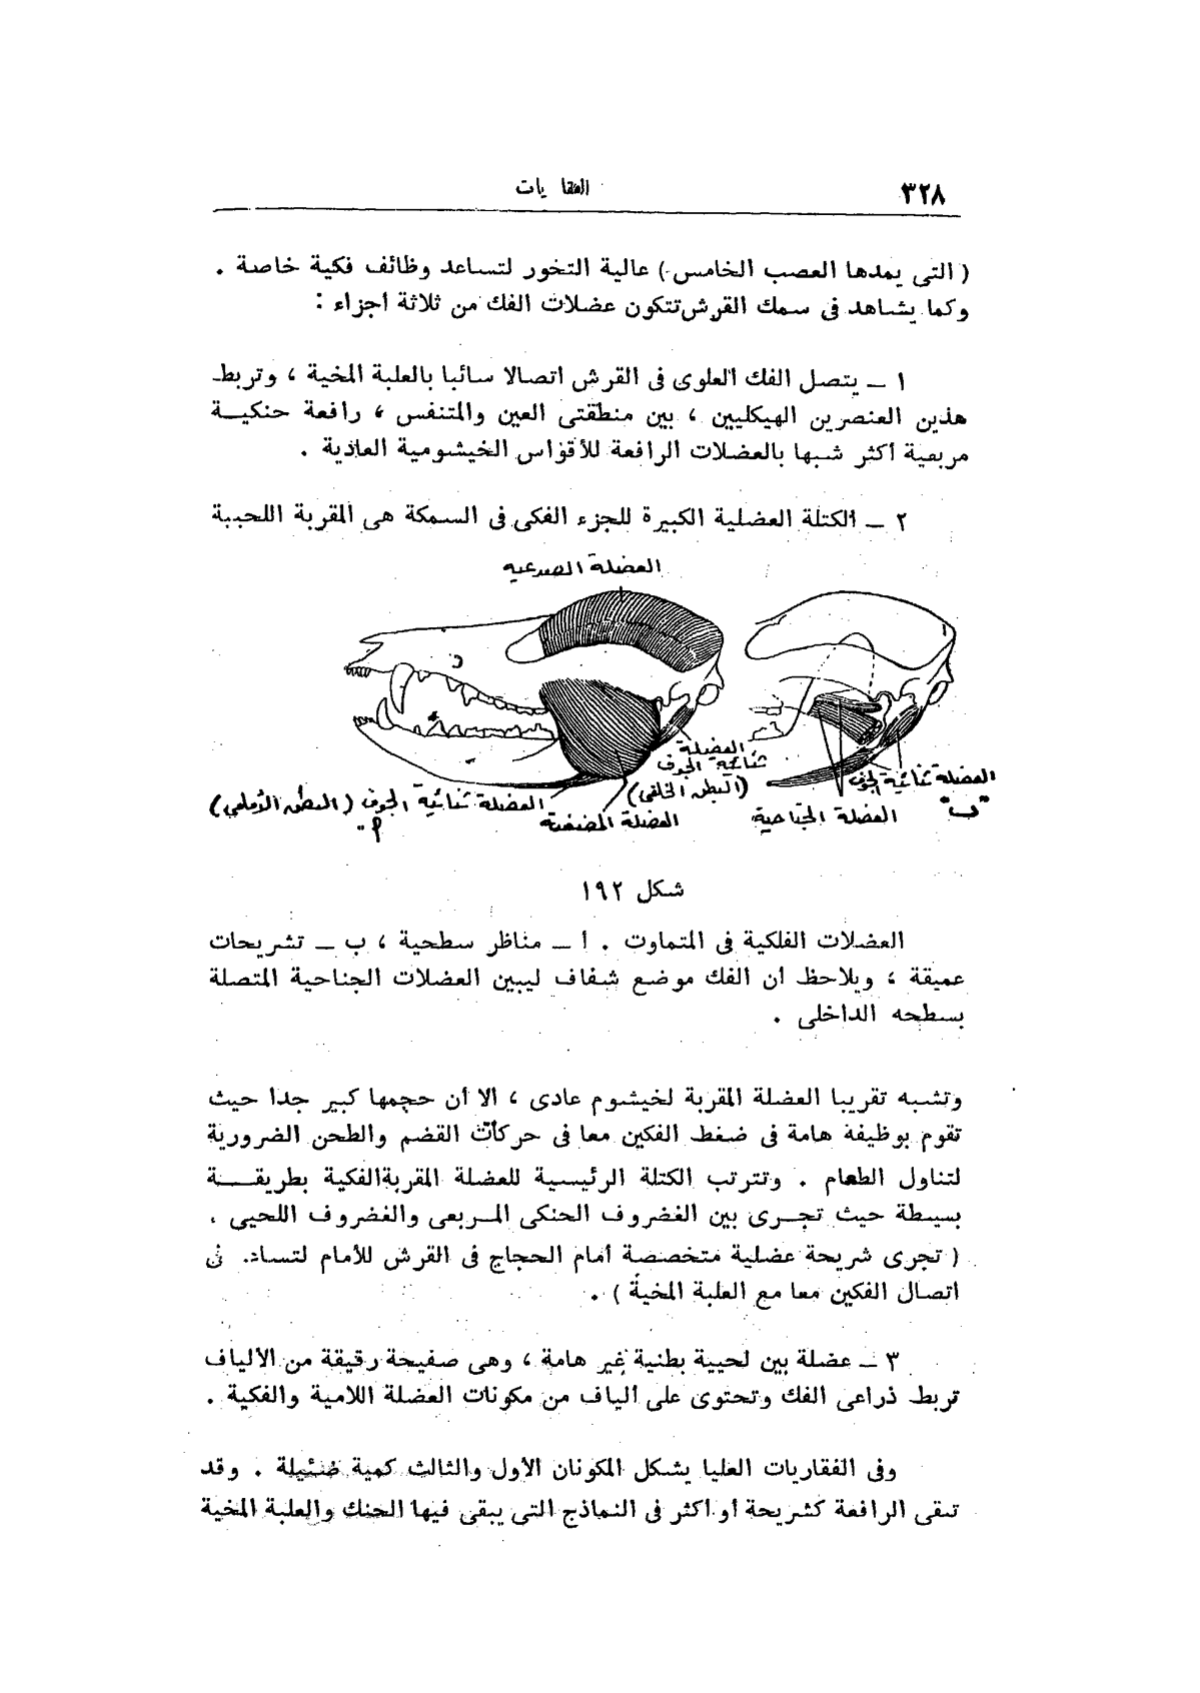 ٣٢٨
الفقا يات
( التى يمدها العصب الخامس ) عالية التخور لتساعد وظائف فكية خاصة .
وكما يشاهد فى سمك القرش تتكون عضلات الفك من ثلاثة اجزاء :
١ ــ يتصل الفك العلوى فى القرش اتصالا سائبا بالعلبة المخية ، وتربط
هذين العنصرين الهيكليين ، بين منطقتى العين والمتنفس ، رافعة حنكيــة
مربعية أكثر شبها بالعضلات الرافعة للأقواس الخيشومية العادية .
٢ ــ الكتلة العضلية الكبيرة للجزء الفكى فى السمكة هى المقربة اللحيية
العضلة الصدعيه
العضلة
ثنائية الجوف
(البطن الخلفى)
العضلة ثنائية الجوف
العضلة ثنائية الجوف (البطن الأمامى)
العضلة المضغية
العضلة الجناحية
"ب"
"أ
شكل ١٩٢
العضلات الفلكية فى المتماوت . ا ــ مناظر سطحية ، ب ــ تشريحات
عميقة ، ويلاحظ أن الفك موضع شفاف ليبين العضلات الجناحية المتصلة
بسطحه الداخلى .
وتشبه تقريبا العضلة المقربة لخيشوم عادى ، الا أن حجمها كبير جدا حيث
تقوم بوظيفة هامة فى ضغط الفكين معا فى حركات القضم والطحن الضرورية
لتناول الطعام . وتترتب الكتلة الرئيسية للعضلة المقربة الفكية بطريقــــة
بسيطة حيث تجــرى بين الغضروف الحنكى المــربعى والغضروف اللحيى .
( تجرى شريحة عضلية متخصصة أمام الحجاج فى القرش للأمام لتساد. فى
اتصال الفكين معا مع العلبة المخية ) .
٣ ــ عضلة بين لحيية بطنية غير هامة ، وهى صفيحة رقيقة من الألياف
تربط ذراعى الفك وتحتوى على ألياف من مكونات العضلة اللامية والفكية .
وفى الفقاريات العليا يشكل المكونان الأول والثالث كمية ضئيلة . وقد
تبقى الرافعة كشريحة أو اكثر فى النماذج التى يبقى فيها الحنك والعلبة المخية